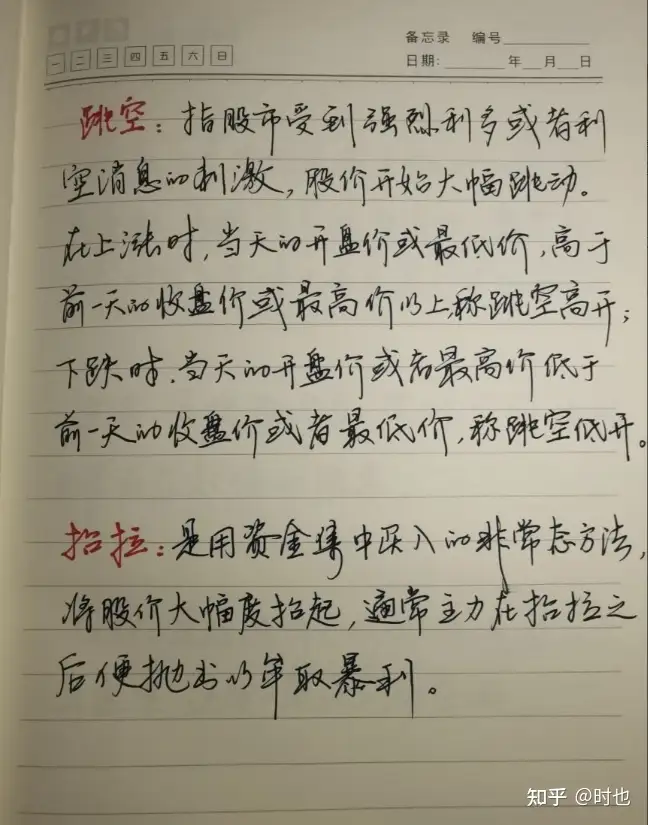 备忘录 编号
一 二 三 四 五 六 日
日期: 年 月 日
跳空：指股市受到强烈利多或者利
空消息的刺激，股价开始大幅跳动。
在上涨时，当天的开盘价或最低价，高于
前一天的收盘价或最高价以上，称跳空高开；
下跌时，当天的开盘价或者最高价低于
前一天的收盘价或者最低价，称跳空低开。
抬拉：是用资金集中买入的非常态方法，
将股价大幅度抬起，通常主力在抬拉之
后便抛出以牟取暴利。
知乎 @时也